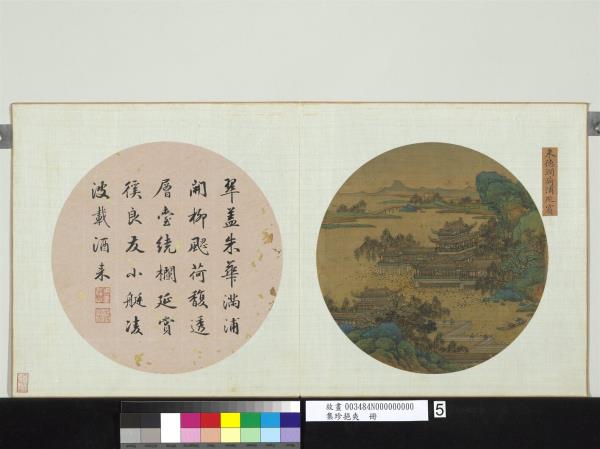 翠盖朱華滿浦
開柳颸荷馥透
層堂繞欄延賞
徯良友小艇凌
波載酒来
朱德潤荷浦延賞
故畫 003484N000000000
集珍挹爽 冊
5